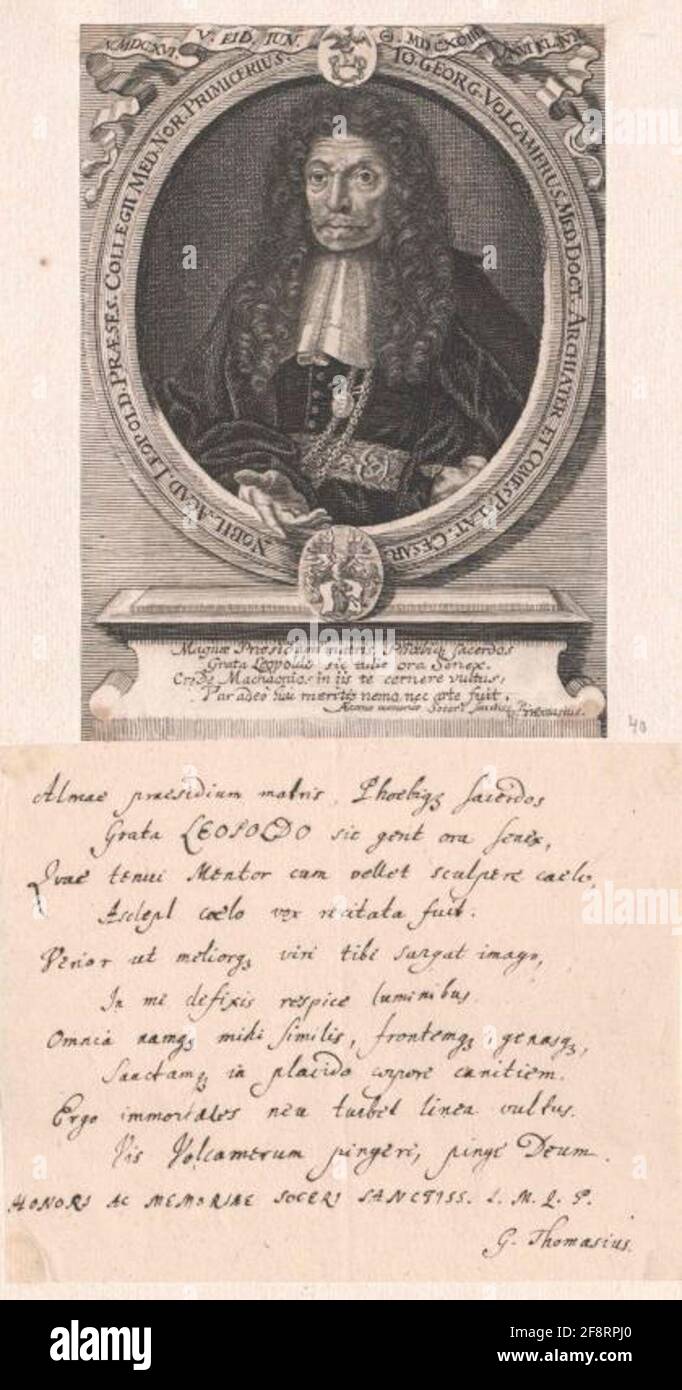 N. MDCXVI. V. EID. IUN. Θ. MDCXCIII. XVI KL. IUN.
IO. GEORG. VOLCAMERUS. MED. DOCT. ARCHIATER ET COMES PALAT. CÆSAR.
NOBIL. ACAD. LEOPOLD. PRÆSES. COLLEGII MED. NOR. PRIMICERIUS.
Magnæ Præsidium matris, Phœbiq; sacerdos
Grata Leopoldo sic tulit ora Senex.
Crede Machaonios in iis te cernere vultus;
Par adeo huic meritis nemo, nec arte fuit.
Thomasius.
40
Almae praesidium matris, Phoebiq; sacerdos
Grata LEOPOLDO sic gerit ora senex,
Quae tenui Mentor cum vellet sculpere caelo,
Asclepl coelo vox recitata fuit.
Verior ut meliorq; viri tibi surgat imago,
In me defixis respice luminibus.
Omnia namq; mihi similis, frontemq; genasq;,
Sanctamq; in placido corpore canitiem.
Ergo immortales neu turbet linea vultus.
Vis Volcamerum pingere, pinge Deum.
HONORI AC MEMORIAE SOCERI SANCTISS. L. M. Q. P.
G. Thomasius.
alamy
alamy
alamy
Image ID: 2F8RRPJ0
www.alamy.com